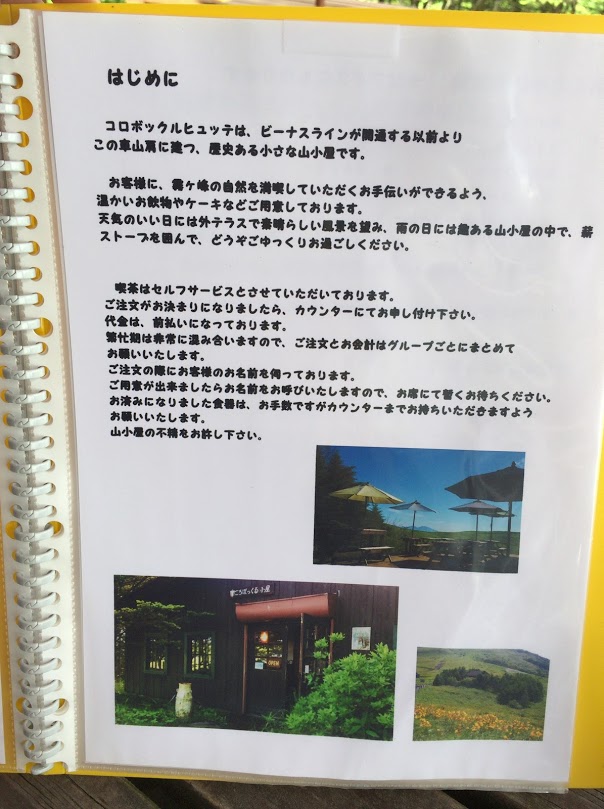 はじめに
コロボックルヒュッテは、ビーナスラインが開通する以前より
この車山肩に建つ、歴史ある小さな山小屋です。
お客様に、霧ヶ峰の自然を満喫していただくお手伝いができるよう、
温かいお飲物やケーキなどご用意しております。
天気のいい日には外テラスで素晴らしい風景を望み、雨の日には趣ある山小屋の中で、薪
ストーブを囲んで、どうぞごゆっくりお過ごしください。
喫茶はセルフサービスとさせていただいております。
ご注文がお決まりになりましたら、カウンターにてお申し付け下さい。
代金は、前払いになっております。
繁忙期は非常に混み合いますので、ご注文とお会計はグループごとにまとめて
お願いいたします。
ご注文の際にお客様のお名前を伺っております。
ご用意が出来ましたらお名前をお呼びいたしますので、お席にて暫くお待ちください。
お済みになりました食器は、お手数ですがカウンターまでお持ちいただきますよう
お願いいたします。
山小屋の不精をお許し下さい。
ころぼっくる小屋
OPEN